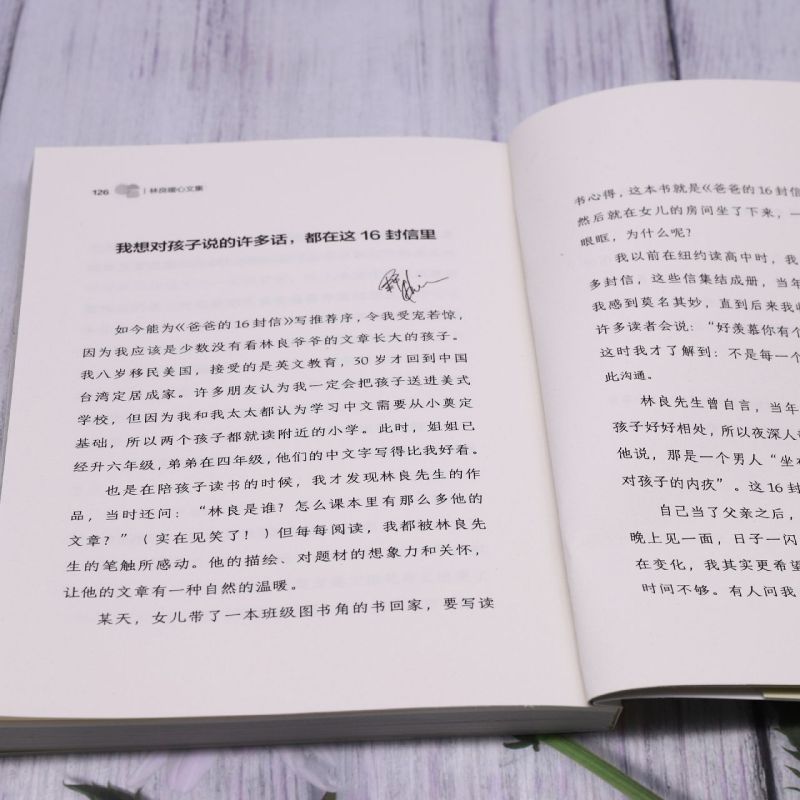 126 | 林良暖心文集
我想对孩子说的许多话，都在这 16 封信里
如今能为《爸爸的 16 封信》写推荐序，令我受宠若惊，
因为我应该是少数没有看林良爷爷的文章长大的孩子。
我八岁移民美国，接受的是英文教育，30 岁才回到中国
台湾定居成家。许多朋友认为我一定会把孩子送进美式
学校，但因为我和我太太都认为学习中文需要从小奠定
基础，所以两个孩子都就读附近的小学。此时，姐姐已
经升六年级，弟弟在四年级，他们的中文字写得比我好看。
也是在陪孩子读书的时候，我才发现林良先生的作
品，当时还问：“林良是谁？怎么课本里有那么多他的
文章？”（实在见笑了！）但每每阅读，我都被林良先
生的笔触所感动。他的描绘、对题材的想象力和关怀，
让他的文章有一种自然的温暖。
某天，女儿带了一本班级图书角的书回家，要写读
书心得，这本书就是《爸爸的 16 封信
然后就在女儿的房间坐了下来，一
眼眶，为什么呢？
我以前在纽约读高中时，我
多封信，这些信集结成册，当年
我感到莫名其妙，直到后来我
许多读者会说：“好羡慕你有个
这时我才了解到：不是每一个
此沟通。
林良先生曾自言，当年
孩子好好相处，所以夜深人
他说，那是一个男人“坐
对孩子的内疚”。这 16 封
自己当了父亲之后，
晚上见一面，日子一闪
在变化，我其实更希望
时间不够。有人问我